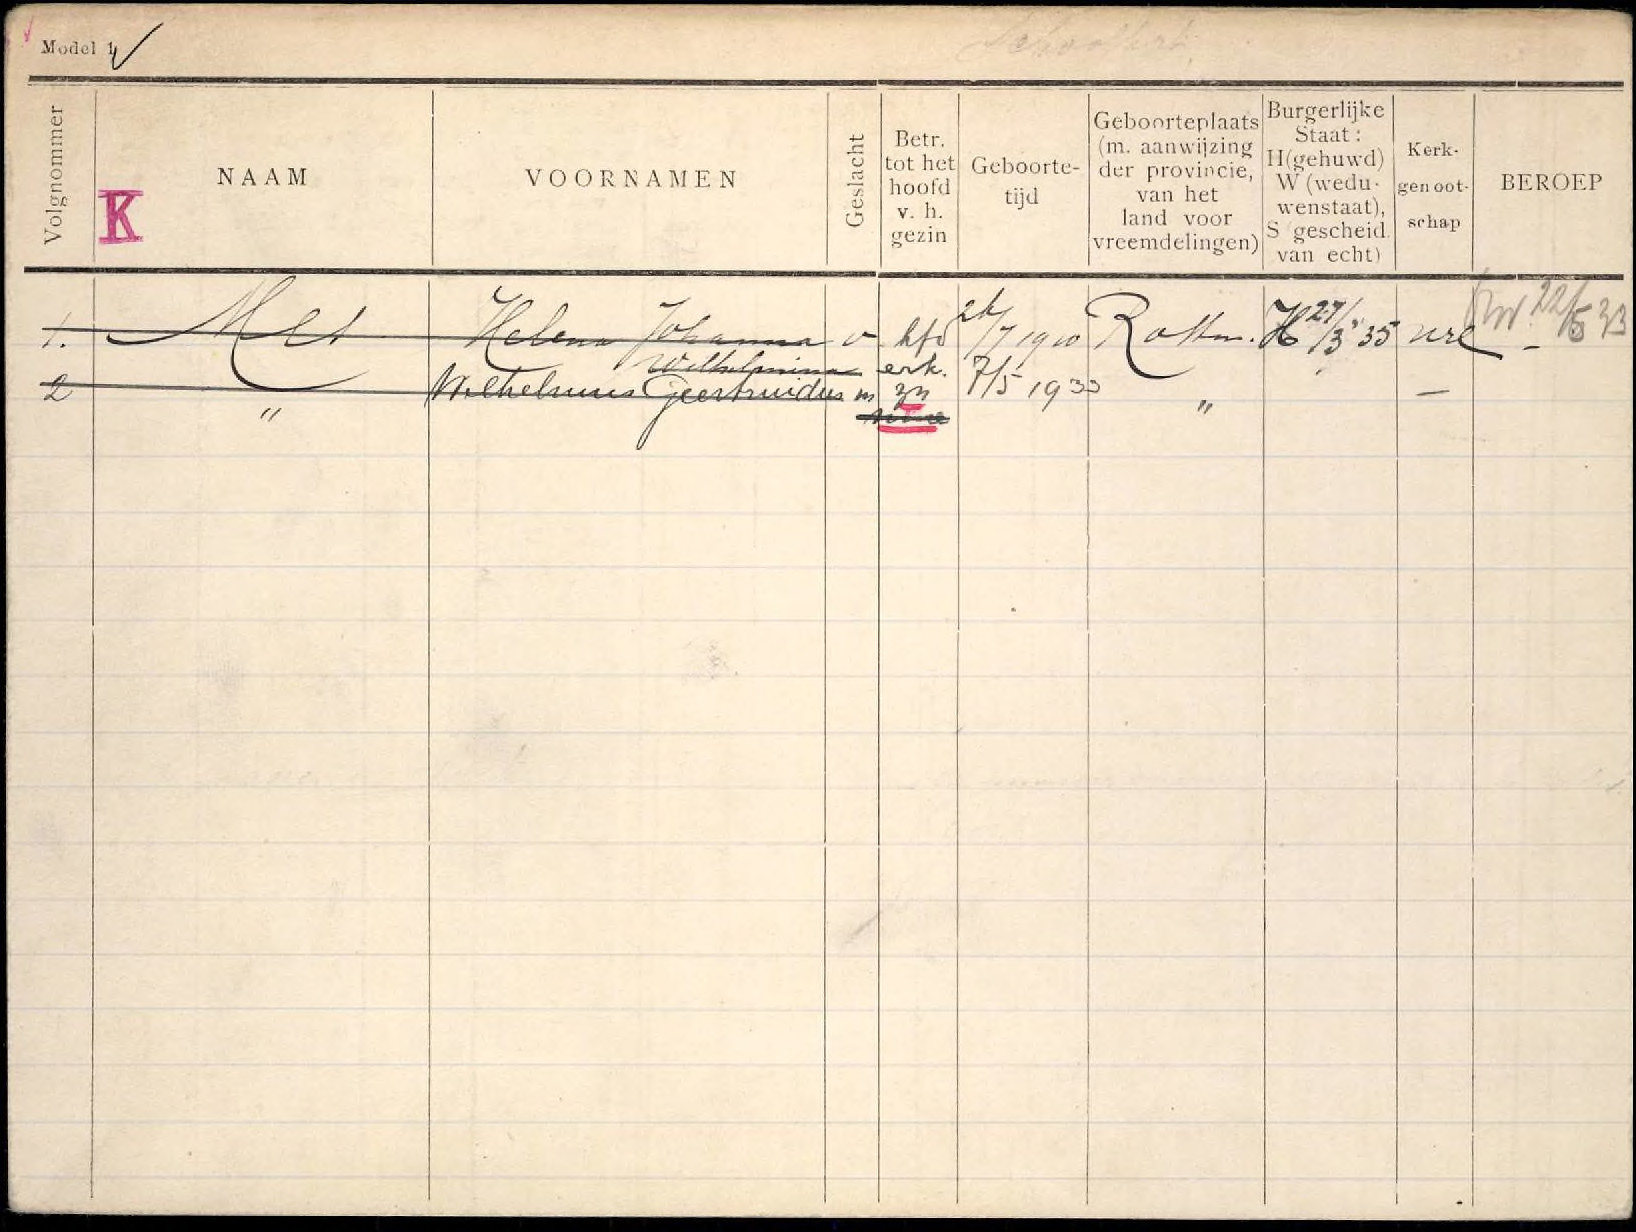 Model 1
Volgnommer
K
NAAM
VOORNAMEN
Geslacht
Betr.
tot het
hoofd
v. h.
gezin
Geboorte-
tijd
Geboorteplaats
(m. aanwijzing
der provincie,
van het
land voor
vreemdelingen)
Burgerlijke
Staat:
H(gehuwd)
W (wedu-
wenstaat),
S gescheid.
van echt)
Kerk-
genoot-
schap
BEROEP
1. Helena Johanna v hfd 26/7 1910 Rottm. H 27/3 '35 22/5 33
Wilhelmina erk.
2 " Wilhelmus Geertruidus m zn 7/5 1933 " —